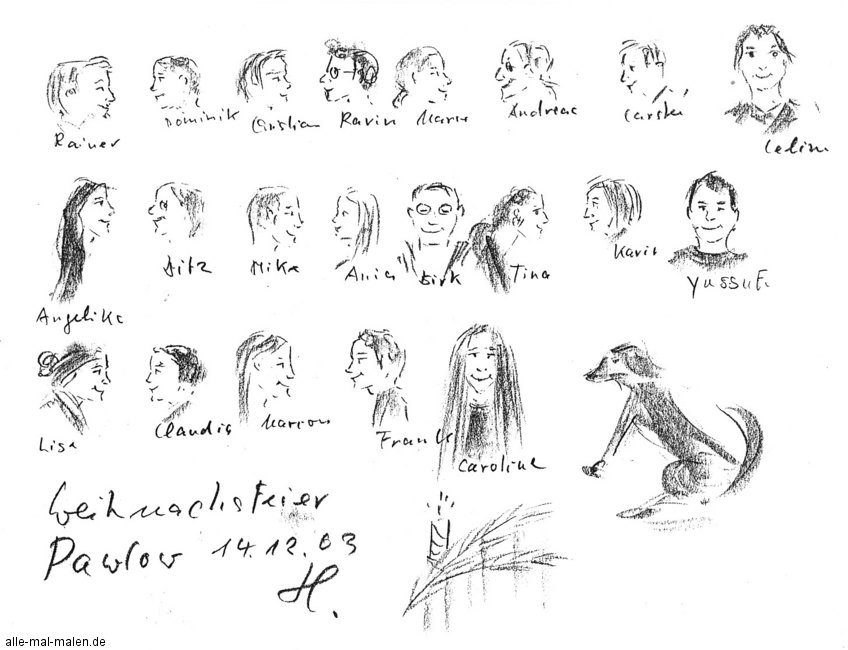 Rainer Dominik Christian Ravin Marie Andreas Carsten Celine
Mike Tina Dirk Karin Yussuf
Angelika
Lisa Claudia Marion Frank
Caroline
Weihnachtsfeier
Pawlow 14.12.03
H.
alle-mal-malen.de